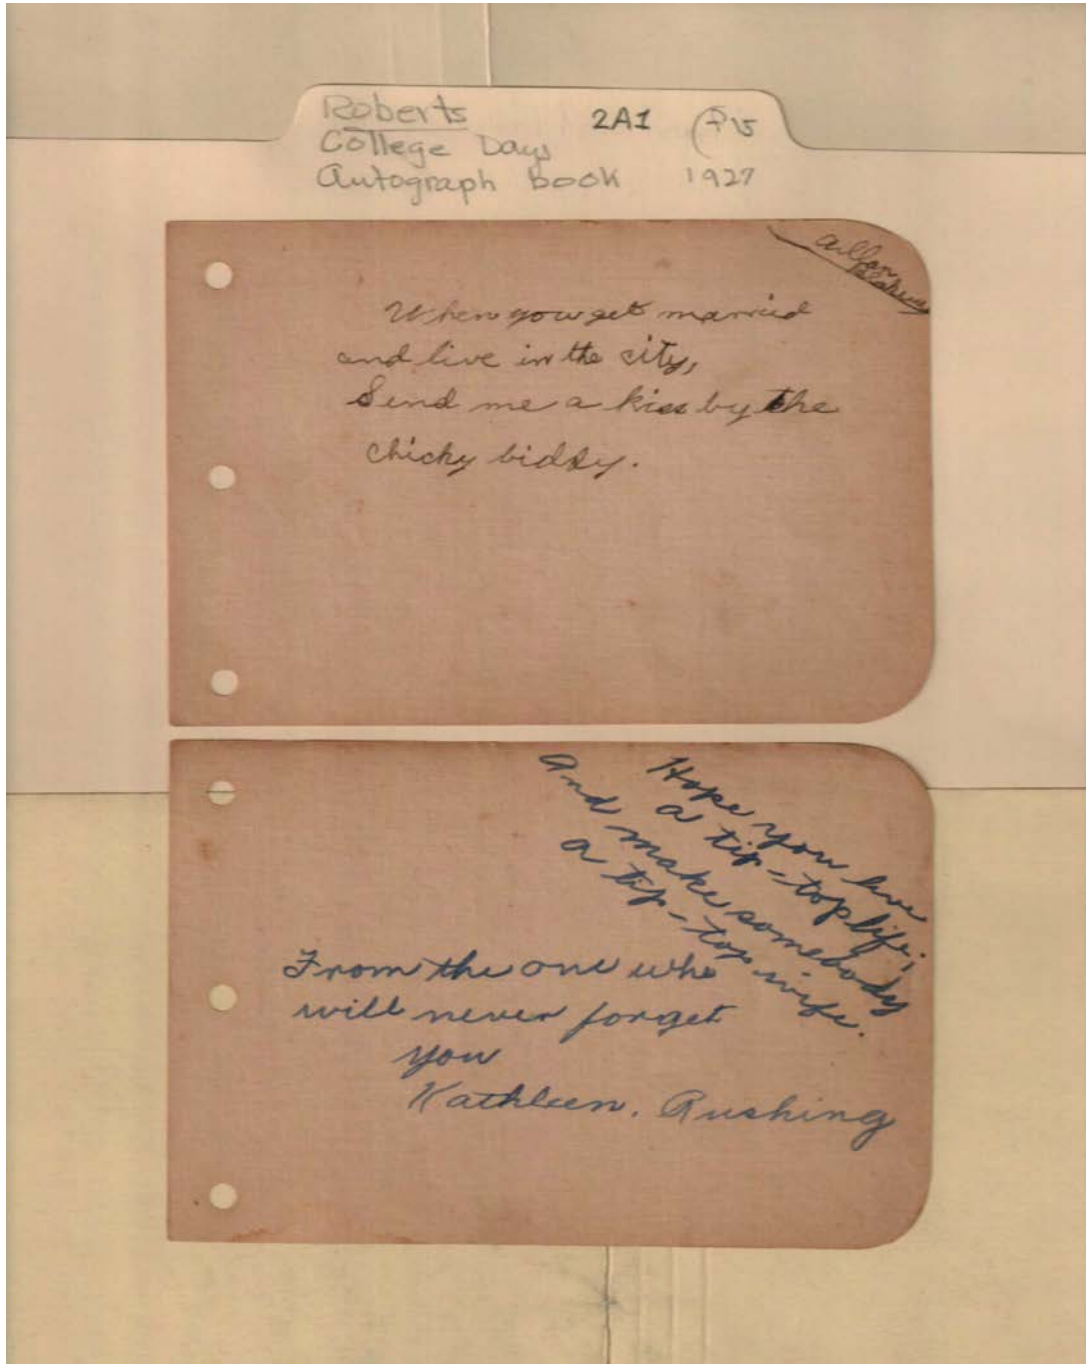 Roberts 2A1
College Days
Autograph book 1927
When you get married
and live in the city,
Send me a kiss by the
chicky biddy.
Hope you live
a tip-top life;
And make somebody
a tip-top wife.
From the one who
will never forget
you
Kathleen. Rushing